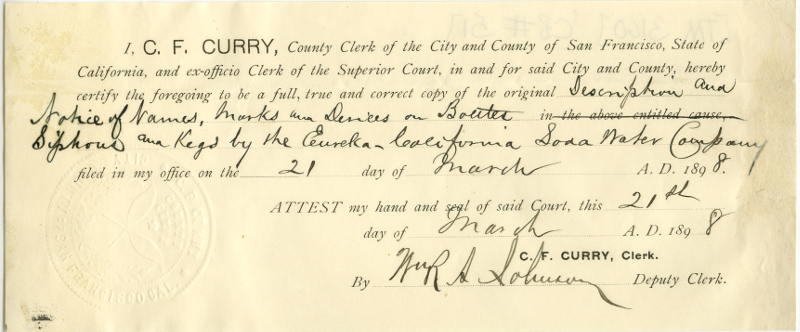 I, C. F. CURRY, County Clerk of the City and County of San Francisco, State of
California, and ex-officio Clerk of the Superior Court, in and for said City and County, hereby
certify the foregoing to be a full, true and correct copy of the original Description and
Notice of Names, Marks and Devices on Bottles in the above entitled cause,
Siphons and Kegs by the Eureka-California Soda Water Company
filed in my office on the 21 day of March A. D. 1898.
ATTEST my hand and seal of said Court, this 21st
day of March A. D. 1898
C. F. CURRY, Clerk.
By Wm R A Johnson Deputy Clerk.
SAN FRANCISCO CAL.